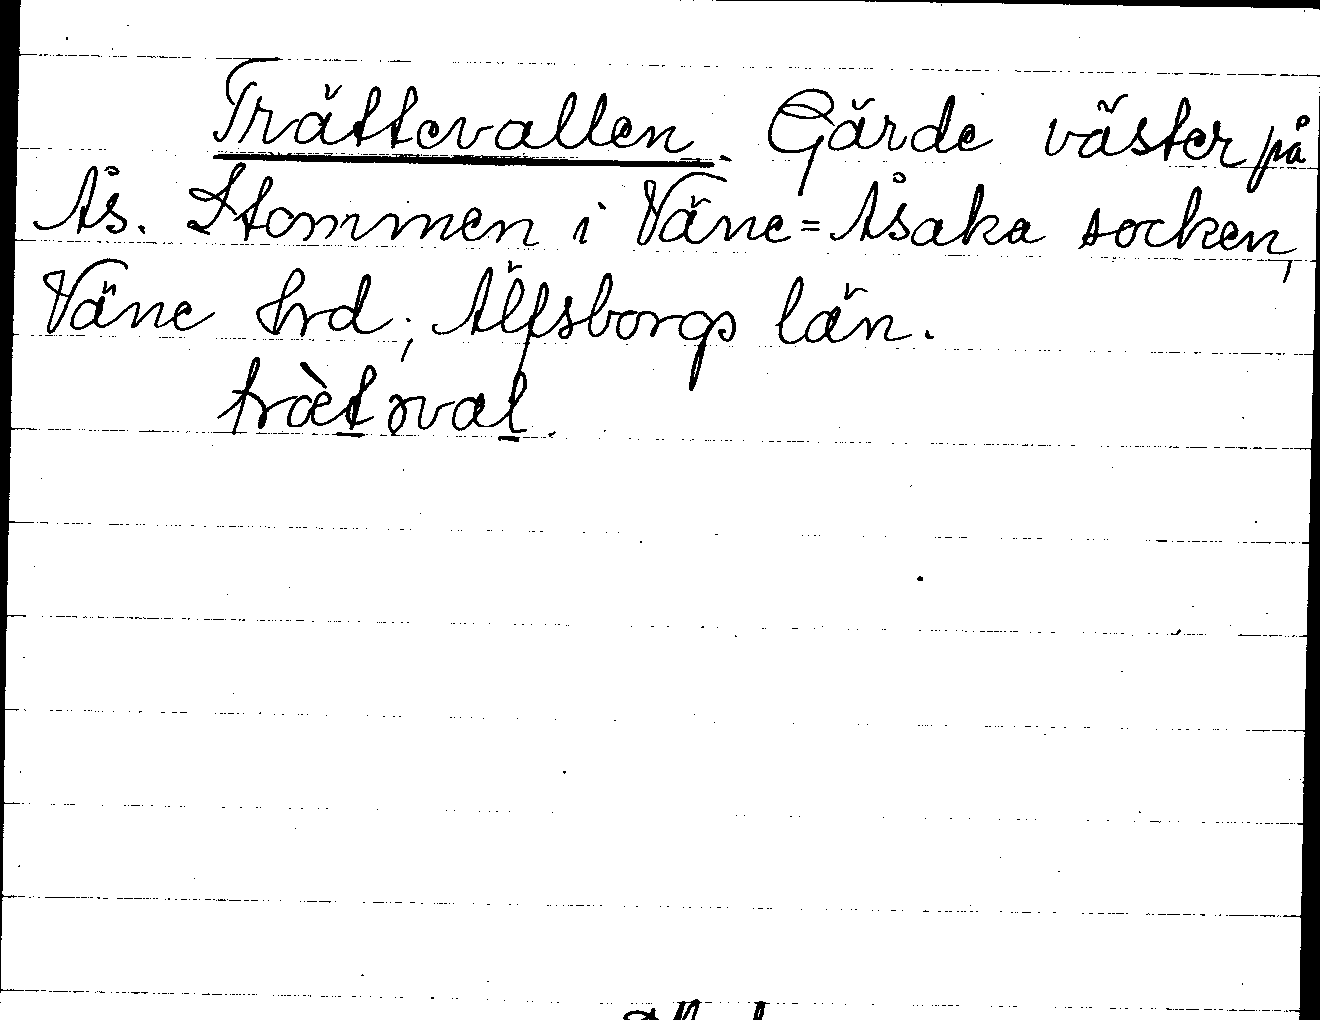 Trättevallen. Gärde väster på
Ås. Stommen i Väne=Åsaka socken,
Väne hrd; Älfsborgs län.
træ̀təval.